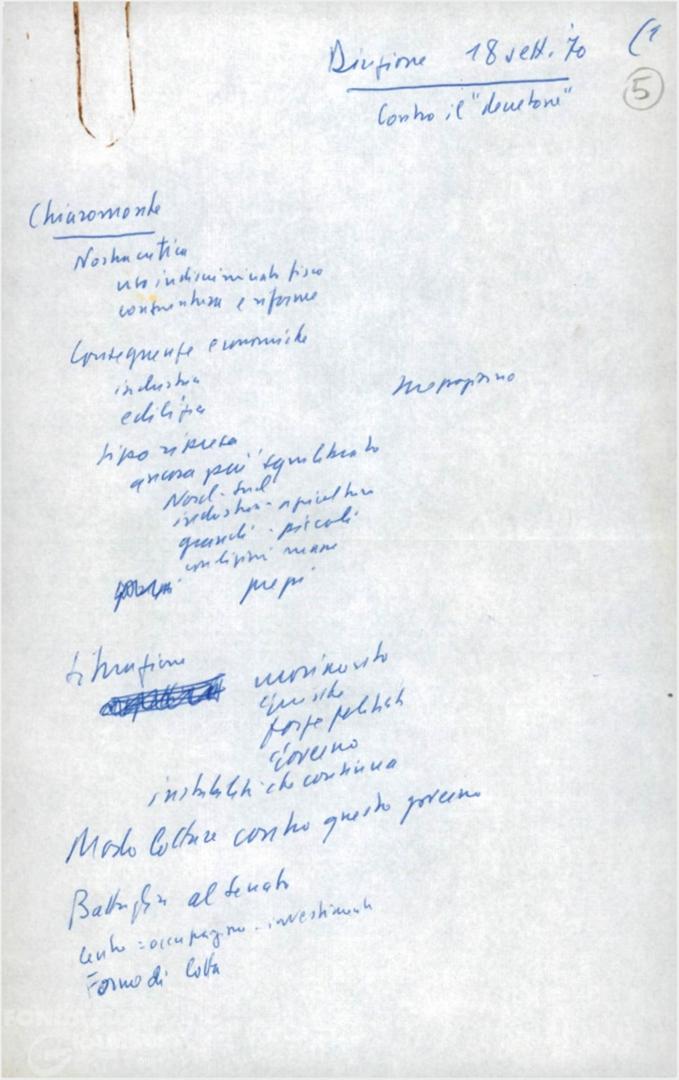 Direzione 18 sett. '70 (1
5
Contro il "decretone"
Chiaromonte
Nostra critica
uso indiscriminato fisco
e riforme
Conseguenze economiche
industria
edilizia
tipo ripresa
ancora più squilibrato
Nord-Sud
industria - agricoltura
grandi - piccoli
condizioni umane
prezzi
Situazione
movimento
forze politiche
Governo
instabilità che continua
Modo lottare contro questo governo
Battaglia al Senato
Centro = occupazione - investimenti
Forme di lotta
FONDAZIONE
GRAMSCI